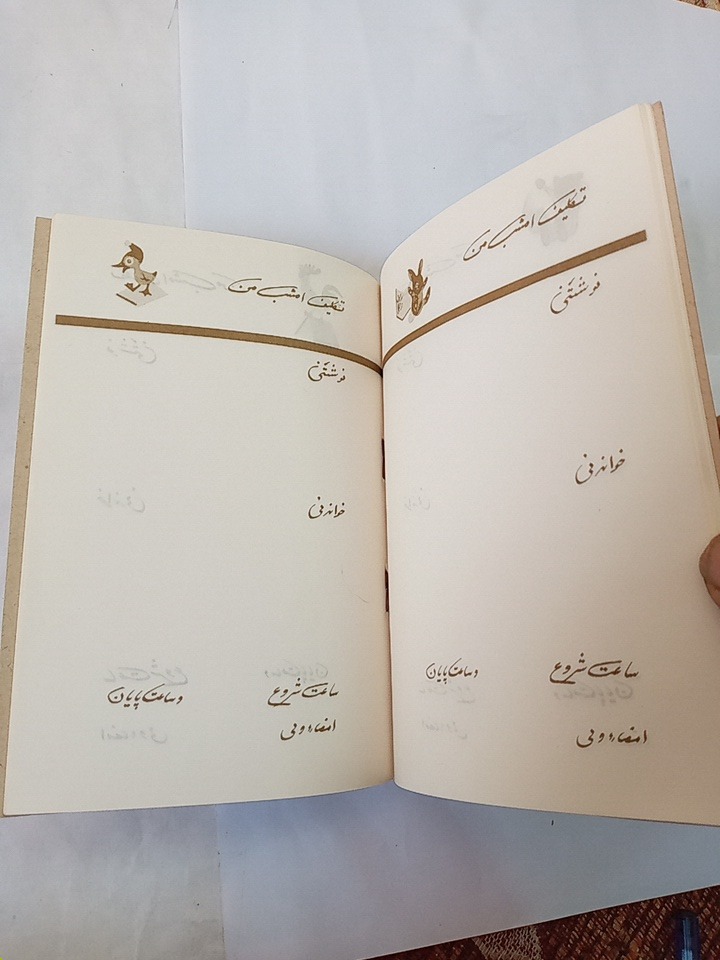 تکلیف امشب من
نوشتنی
خواندنی
ساعت شروع وساعت پایان
امضاء ولی
تکلیف امشب من
نوشتنی
خواندنی
ساعت شروع وساعت پایان
امضاء ولی